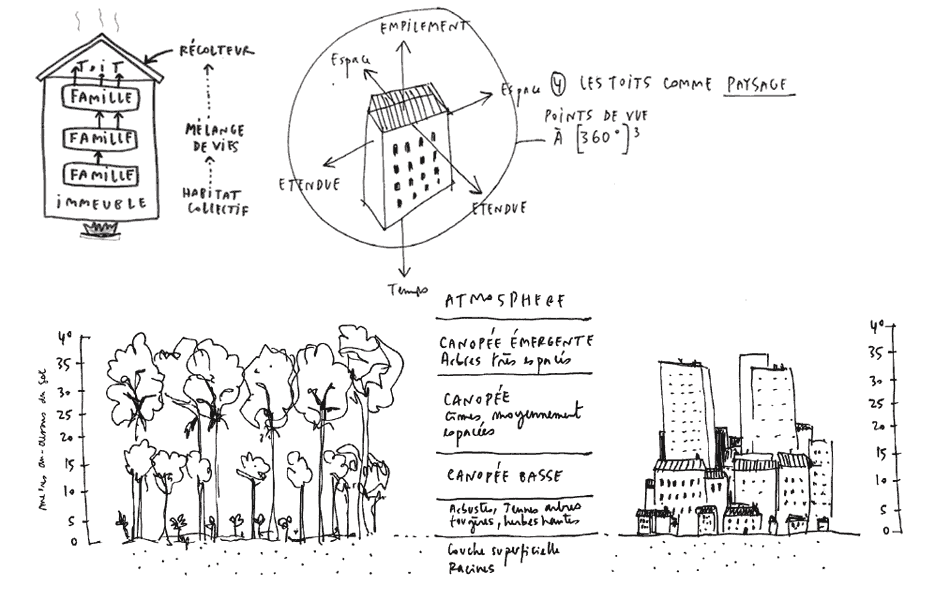 TOIT
FAMILLE
FAMILLE
FAMILLE
IMMEUBLE
RÉCOLTEUR
MÉLANGE
DE VIES
HABITAT
COLLECTIF
EMPILEMENT
Espace
Espace
ETENDUE
ETENDUE
Temps
4 LES TOITS COMME PAYSAGE
POINTS DE VUE
À [360°]³
ATMOSPHERE
CANOPÉE ÉMERGENTE
Arbres très espacés
CANOPÉE
cimes, moyennement
espacées
CANOPÉE BASSE
Arbustes, Jeunes arbres
fougères, herbes hautes
Couche superficielle
Racines
mètres au-dessus du sol
40
35
30
25
20
15
10
5
0
40
35
30
25
20
15
10
5
0